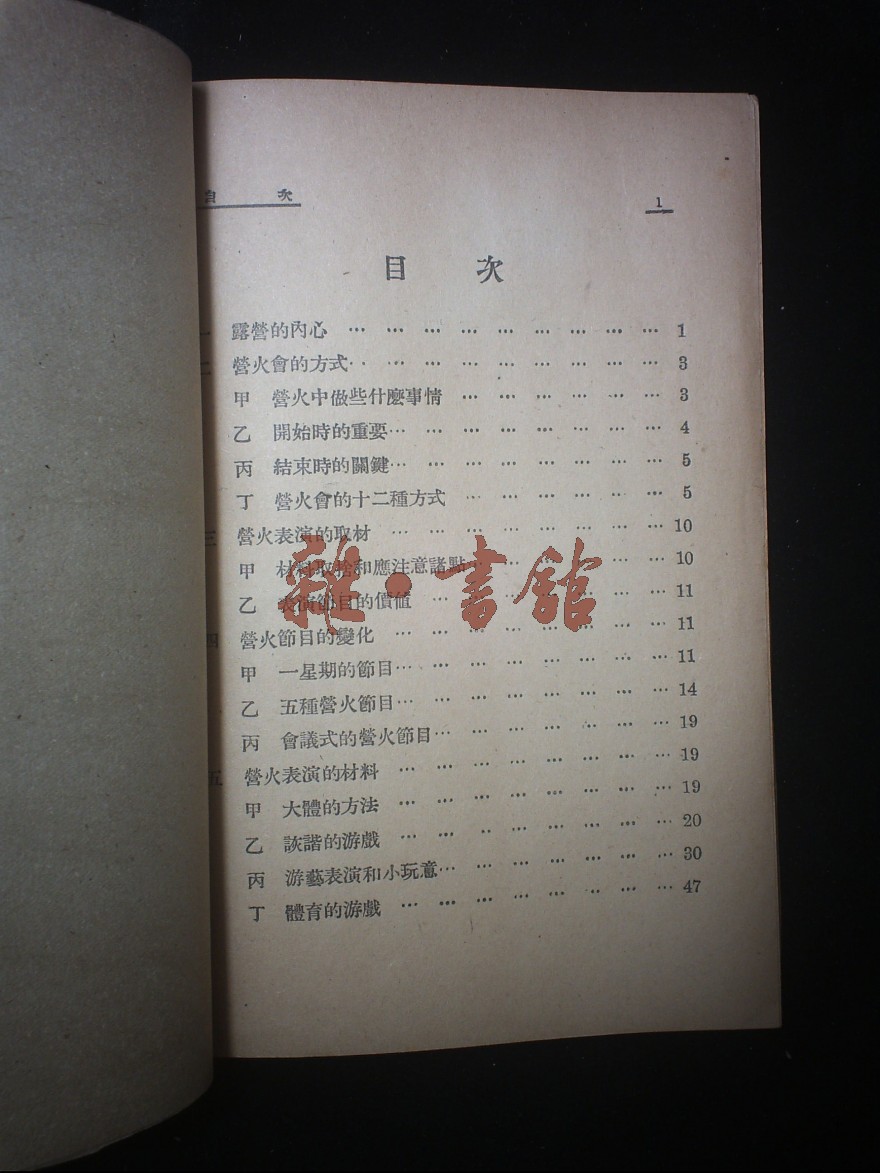 目 次 1
目 次
一 露營的內心 … … … … … … … … … 1
二 營火會的方式… … … … … … … … … 3
甲 營火中做些什麼事情 … … … … … … 3
乙 開始時的重要… … … … … … … … 4
丙 結束時的關鍵… … … … … … … … 5
丁 營火會的十二種方式 … … … … … … 5
三 營火表演的取材 … … … … … … … … 10
甲 材料取捨和應注意諸點 … … … … … 10
乙 表演節目的價值 … … … … … … … 11
四 營火節目的變化 … … … … … … … … 11
甲 一星期的節目… … … … … … … … 11
乙 五種營火節目… … … … … … … … 14
丙 會議式的營火節目… … … … … … … 19
五 營火表演的材料 … … … … … … … … 19
甲 大體的方法 … … … … … … … … 19
乙 詼諧的游戲 … … … … … … … … 20
丙 游藝表演和小玩意… … … … … … … 30
丁 體育的游戲 … … … … … … … … 47
雜·書館